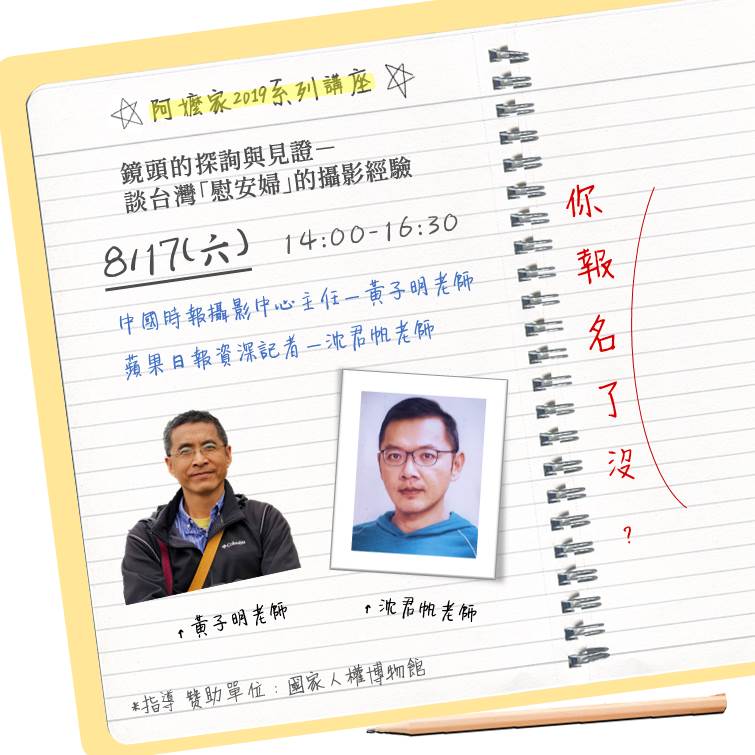 阿嬤家2019系列講座
鏡頭的探詢與見證—
談台灣「慰安婦」的攝影經驗
8/17(六) 14:00-16:30
中國時報攝影中心主任—黃子明老師
蘋果日報資深記者—沈君帆老師
Columbia
↑黃子明老師
↑沈君帆老師
*指導 贊助單位：國家人權博物館
你報名了沒?